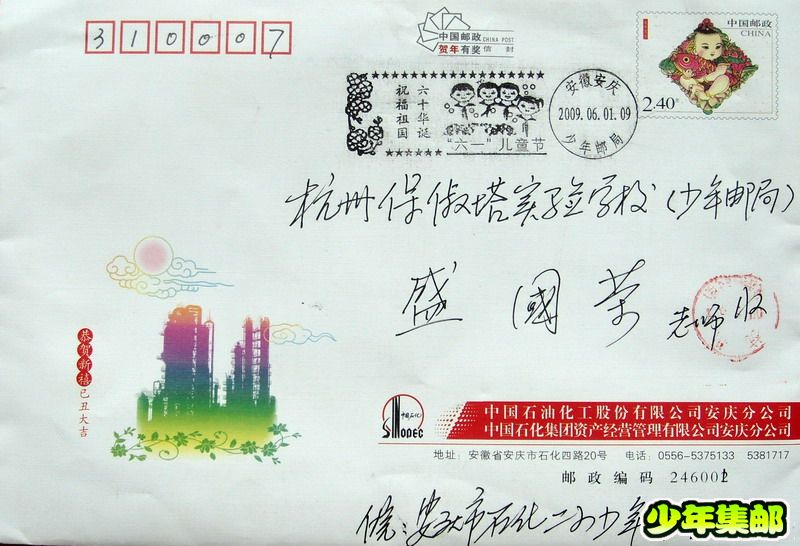 310007
中国邮政 CHINA POST
贺年有奖信封
中国邮政
CHINA
2.40
六十华诞
祝福祖国
"六一"儿童节
安徽安庆
2009.06.01.09
少年邮局
杭州保俶塔实验学校(少年邮局)
盛國荣 老师收
恭贺新禧
己丑大吉
中国石化
SINOPEC
中国石油化工股份有限公司安庆分公司
中国石化集团资产经营管理有限公司安庆分公司
地址:安徽省安庆市石化四路20号 电话:0556-5375133 5381717
邮政编码 246002
安庆市石化二小少年
少年集邮